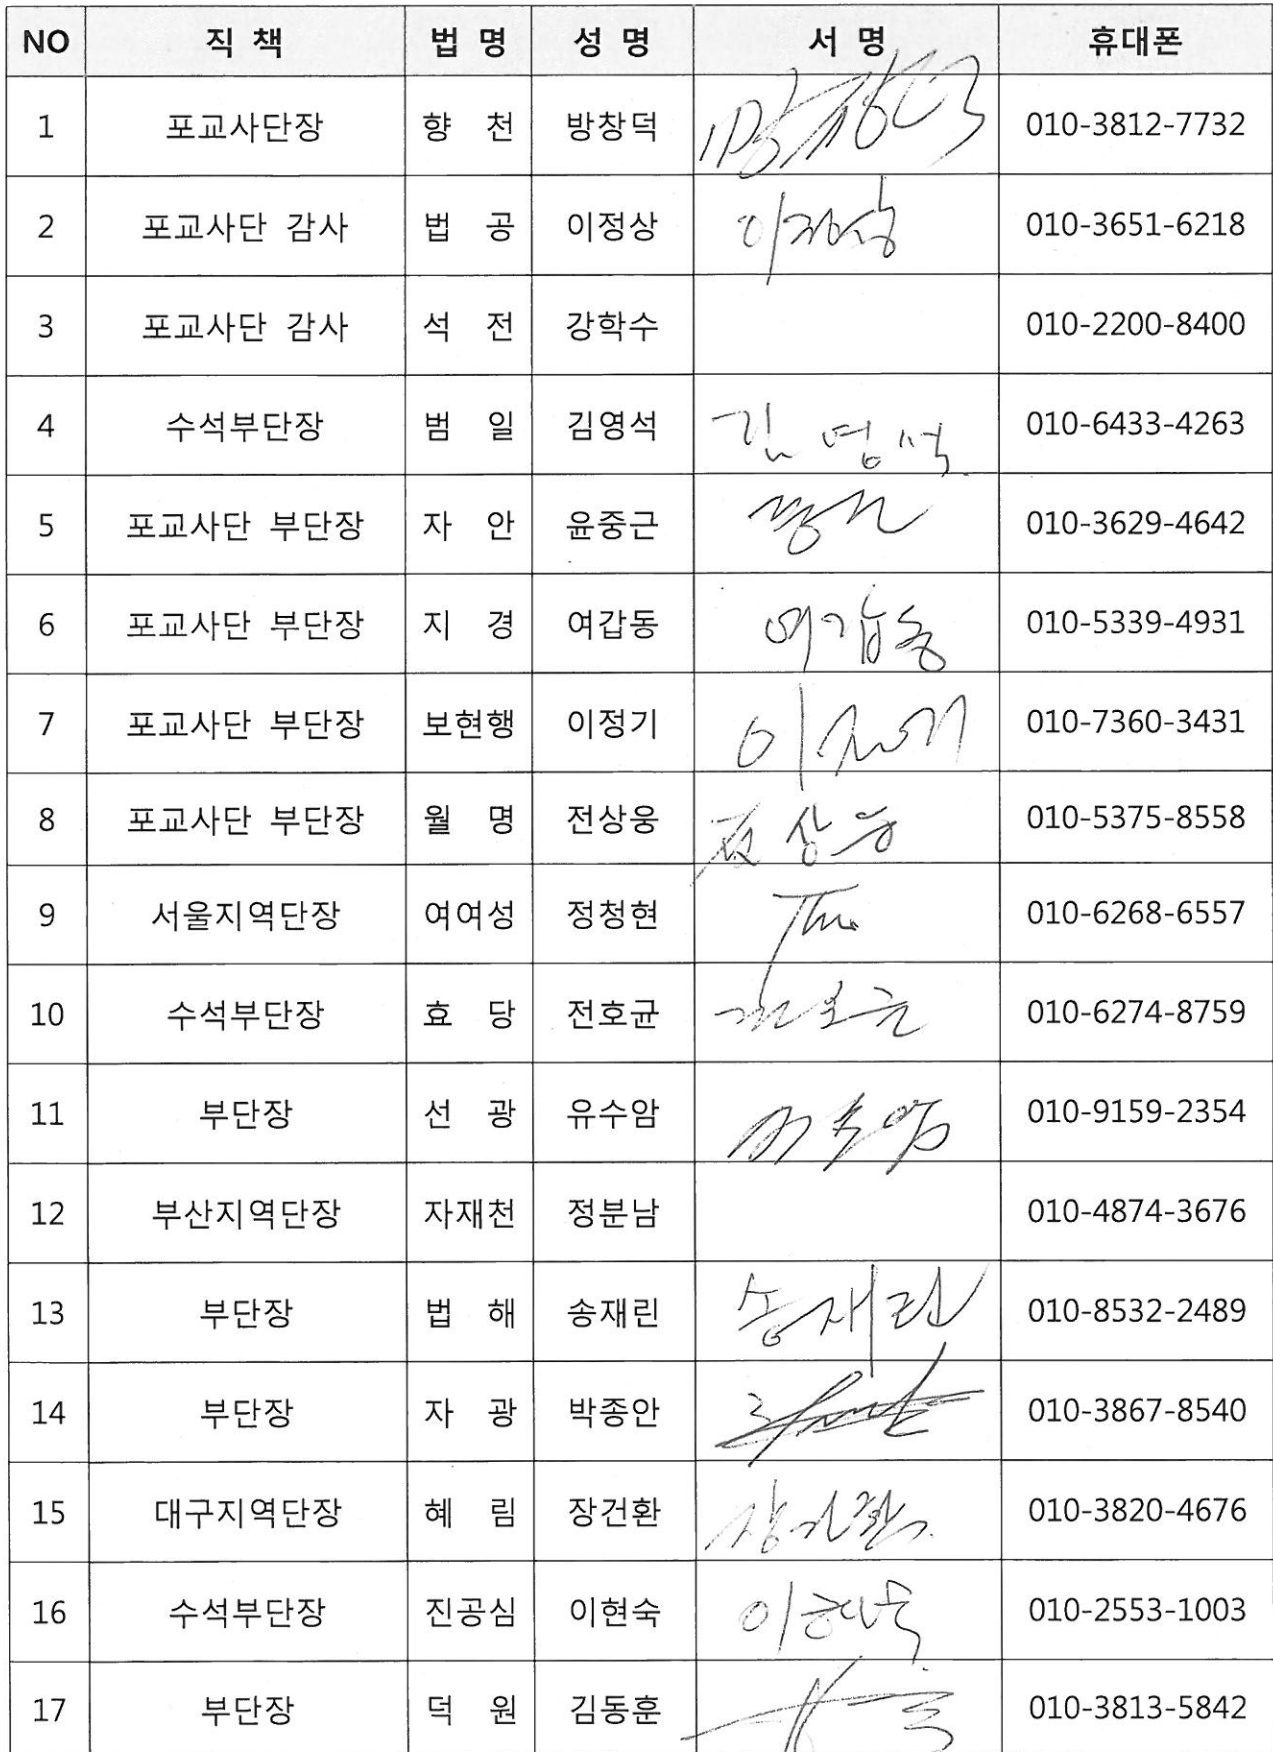 NO 직 책 법 명 성 명 서 명 휴대폰
1 포교사단장 향 천 방창덕 방창덕 010-3812-7732
2 포교사단 감사 법 공 이정상 이정상 010-3651-6218
3 포교사단 감사 석 전 강학수 010-2200-8400
4 수석부단장 범 일 김영석 김영석 010-6433-4263
5 포교사단 부단장 자 안 윤중근 010-3629-4642
6 포교사단 부단장 지 경 여갑동 여갑동 010-5339-4931
7 포교사단 부단장 보현행 이정기 이정기 010-7360-3431
8 포교사단 부단장 월 명 전상웅 전상웅 010-5375-8558
9 서울지역단장 여여성 정청현 010-6268-6557
10 수석부단장 효 당 전호균 전호균 010-6274-8759
11 부단장 선 광 유수암 유수암 010-9159-2354
12 부산지역단장 자재천 정분남 010-4874-3676
13 부단장 법 해 송재린 송재린 010-8532-2489
14 부단장 자 광 박종안 010-3867-8540
15 대구지역단장 혜 림 장건환 장건환 010-3820-4676
16 수석부단장 진공심 이현숙 이현숙 010-2553-1003
17 부단장 덕 원 김동훈 010-3813-5842